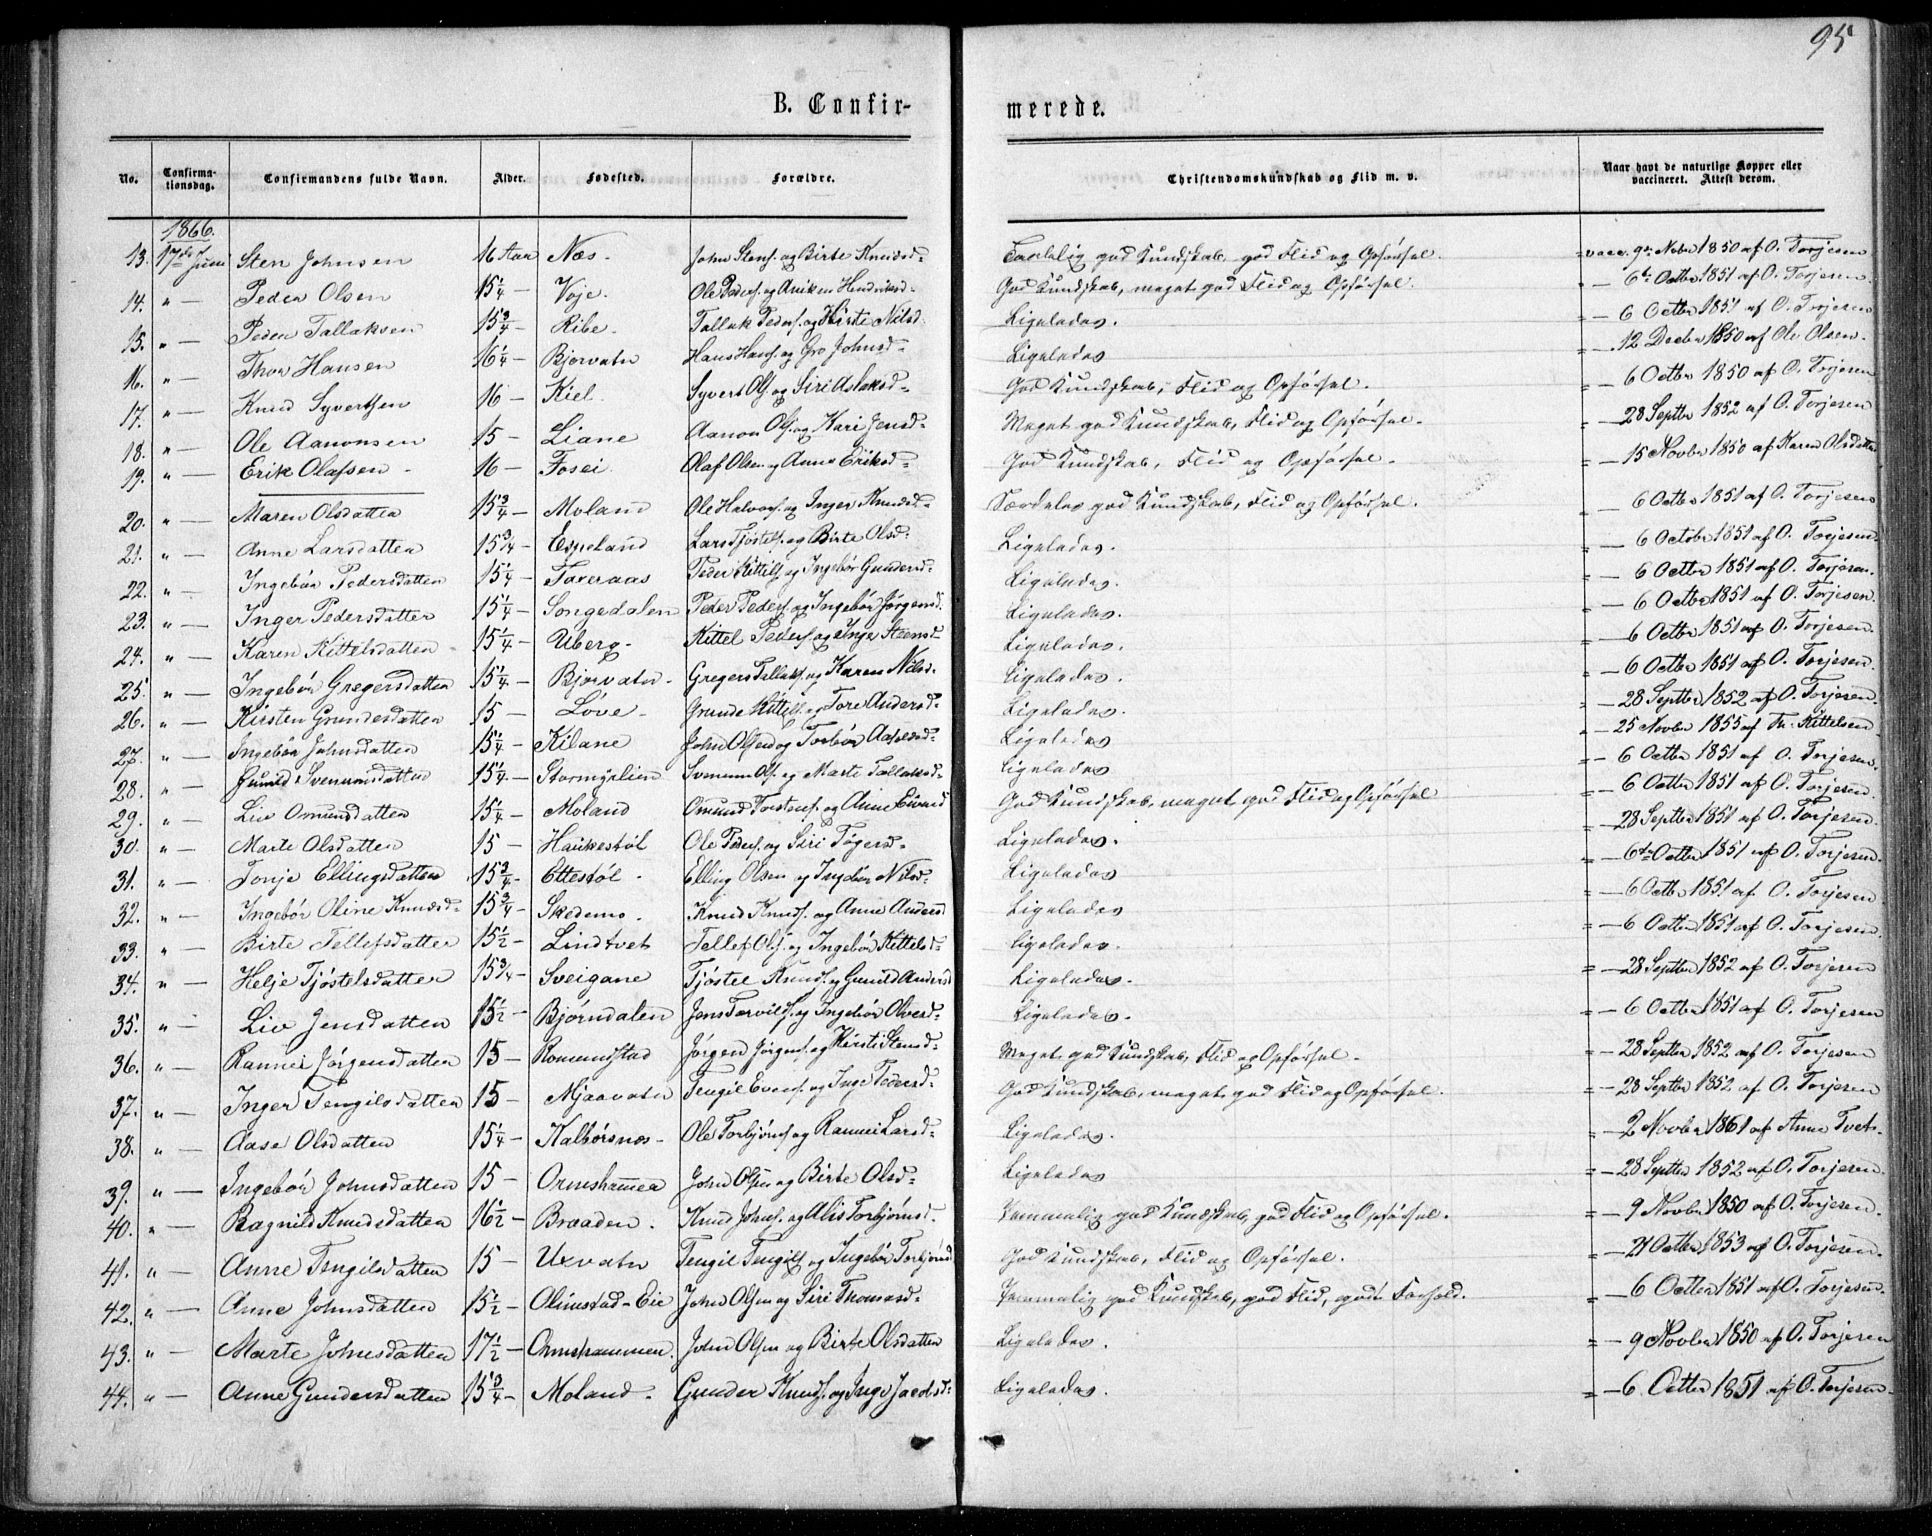 95
B. Confirmerede.
No. Confirmationsdag. Confirmandens fulde Navn. Alder. Fødested. Forældre. Christendomskundskab og Flid m. v. Naar havt de naturlige Kopper eller vaccineret. Attest derom.
1866.
13. 17de Juni Sten Johnsen 16 Aar Næs. John Stens. og Birte Knudsd. god Kundskab, god Flid og Opførsel. vacc. 9de Novbr 1850 af O. Torjesen
14. " — Peder Olsen 15 1/4 — Voje. Ole Peders. og Aniken Henriksd. God Kundskab, meget god Flid og Opførsel. — 6te Octbr 1851 af O. Torjesen.
15. " — Peder Tallaksen 15 3/4 — Ribe. Tallak Peders. og Birte Nilsd. Ligeledes. — 6 Octbr 1851 af O. Torjesen
16. " — Thor Hansen 16 1/4 — Bjorvatn Hans Hans. og Gro Johnsd. Ligeledes — 12 Decbr 1850 af Ole Olsen.
17. " — Knud Syvertsen 16 — Kiel. Syvert Ols. og Siri Aslaksd. God Kundskab, Flid og Opførsel. — 6 Octbr 1850 af O. Torjesen
18. " — Ole Aanonsen 15 — Liane Aanon Ols. og Kari Jensd. Meget god Kundskab, Flid og Opførsel. — 28 Septbr 1852 af O. Torjesen
19. " — Erik Olafsen 16 — Fosei. Olaf Olsen og Anne Eriksd. God Kundskab, Flid og Opførsel. — 15 Novbr 1850 af Karen Olsdatter
20. " — Maren Olsdatter 15 3/4 — Moland Ole Halvors. og Inger Knudsd. Særdeles god Kundskab, Flid og Opførsel. — 6 Octbr 1851 af O. Torjesen
21. " — Anne Larsdatter 15 3/4 — Espeland Lars Tjøstels. og Birte Olsd. Ligeledes. — 6 Octobr 1851 af O. Torjesen.
22. " — Ingebør Pedersdatter 15 1/4 — Taxeraas Peder Kittils. og Ingebør Gundersd. Ligeledes. — 6 Octbr 1851 af O. Torjesen.
23. " — Inger Pedersdatter 15 1/4 — Songedalen Peder Peders. og Ingebør Jørgensd. Ligeledes. — 6 Octbr 1851 af O. Torjesen.
24. " — Karen Kittelsdatter 15 1/4 — Uberg. Kittel Peders. og Inge Steensd. Ligeledes. — 6 Octbr 1851 af O. Torjesen.
25. " — Ingebør Gregersdatter 15 1/4 — Bjorvatn. Gregers Tallaks. og Karen Nilsd. Ligeledes. — 6 Octbr 1851 af O. Torjesen.
26. " — Kirsten Grundesdatter 15 — Løve. Grunde Kittils. og Tore Andersd. Ligeledes. — 28 Septbr 1852 af O. Torjesen.
27. " — Ingebør Johnsdatter 15 1/4 — Kilane John Olsen og Torbør Ligeledes — 25 Novbr 1855 af Kittelsen
28. " — Gunild Svenumsdatter 15 1/4 — Stormyrlien Svenum Ols. og Marte Tallaksd. Ligeledes — 6 Octbr 1851 af O. Torjesen.
29. " — Liv Omundsdatter 15 1/4 — Moland Omund Torstens. og Anne Eivind God Kundskab, meget god Flid og Opførsel — 6 Octbr 1851 af O. Torjesen.
30. " — Marte Olsdatter 15 — Haukestøl Ole Peders. og Siri Tøgersd. Ligeledes. — 28 Septbr 1851 af O. Torjesen.
31. " — Tonje Ellingsdatter 15 3/4 — Ettestøl. Elling Olsen og Ingebør Nilsd. Ligeledes — 6te Octbr 1851 af O. Torjesen.
32. " — Ingebør Oline Knudsd. 15 3/4 — Skedemo. Knud Knuds. og Anne Andersd Ligeledes — 6 Octbr 1851 af O. Torjesen.
33. " Birte Tellefsdatter 15 1/2 — Lindtvet Tellef Ols. og Ingebør Kittelsd. Ligeledes. — 6 Octbr 1851 af O. Torjesen.
34. " — Helje Tjøstelsdatter 15 3/4 — Sveigane Tjøstel Knuds. og Gunild Andersd Ligeledes. — 28 Septbr 1852 af O. Torjesen
35. " — Liv Jensdatter 15 1/2 — Bjørndalen Jens Tarvilds. og Ingebør Olversd. Ligeledes. — 6 Octbr 1851 af O. Torjesen
36. " — Rannei Jørgensdatter 15 — Romundstad Jørgen Jørgens. og Kirsti Stensd. Meget god Kundskab, Flid og Opførsel. — 28 Septbr 1852 af O. Torjesen
37. " — Inger Tengilsdatter 15 — Mjaavatn Tengil Evens. og Inge Pedersd. God Kundskab, meget god Flid og Opførsel. — 28 Septbr 1852 af O. Torjesen
38. " — Aase Olsdatter 15 1/4 — Kalbørsnos Ole Torbjøns. og Rannei Larsd. Ligeledes. — 2 Novbr 1861 af Anne Tvet.
39. " — Ingebør Johnsdatter 15 — Ormshammer John Olsen og Birte Olsd. Ligeledes — 28 Septbr 1852 af O. Torjesen.
40. " — Ragnild Knudsdatter 16 1/2 — Braaden. Knud Johns. og Alis Torbjørnsd. Temmelig god Kundskab, god Flid og Opførsel. — 9 Novbr 1850 af O. Torjesen.
41. " — Anne Tengilsdatter 15 — Uxvatn Tengil Tengils. og Ingebør Torbjørnsd God Kundskab, Flid og Opførsel. — 21 Octbr 1853 af O. Torjesen.
42. " — Anne Johnsdatter 15 1/2 — Olimstad-Eie John Olsen og Siri Thomasd. Temmelig god Kundskab, god Flid, godt Forhold. — 6 Octbr 1851 af O. Torjesen.
43. " — Marte Johnsdatter 17 1/2 — Ormshammer. John Olsen og Birte Olsdatter Ligeledes. — 9 Novbr 1850 af O. Torjesen
44. " — Anne Gundersdatter 15 3/4 — Moland. Gunder Knuds. og Inge Ligeledes. — 6 Octbr 1851 af O. Torjesen.